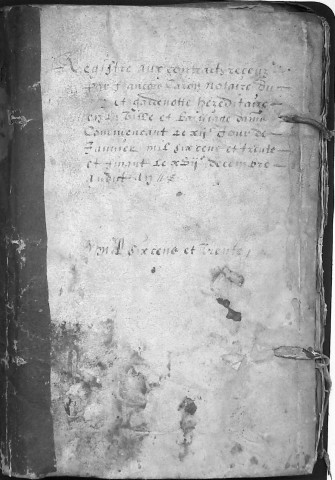 Registre aux contractz receuz
par francois Caron Notaire du
Et gardenotte hereditaire
en la Ville et
Commencant Le xii.e Jour de
Januier mil six cens et trente
et finant Le decembre
audit an
mil six cens et Trente